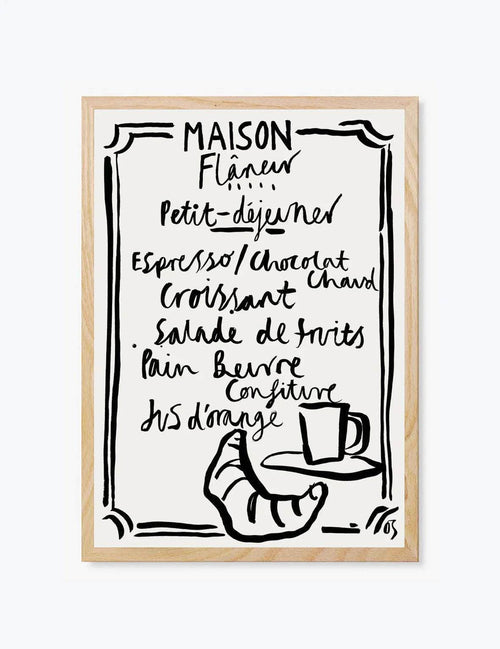 MAISON
Flâneur
Petit-déjeuner
Espresso/Chocolat
Chaud
Croissant
Salade de fruits
Pain Beurre
Confiture
Jus d'orange